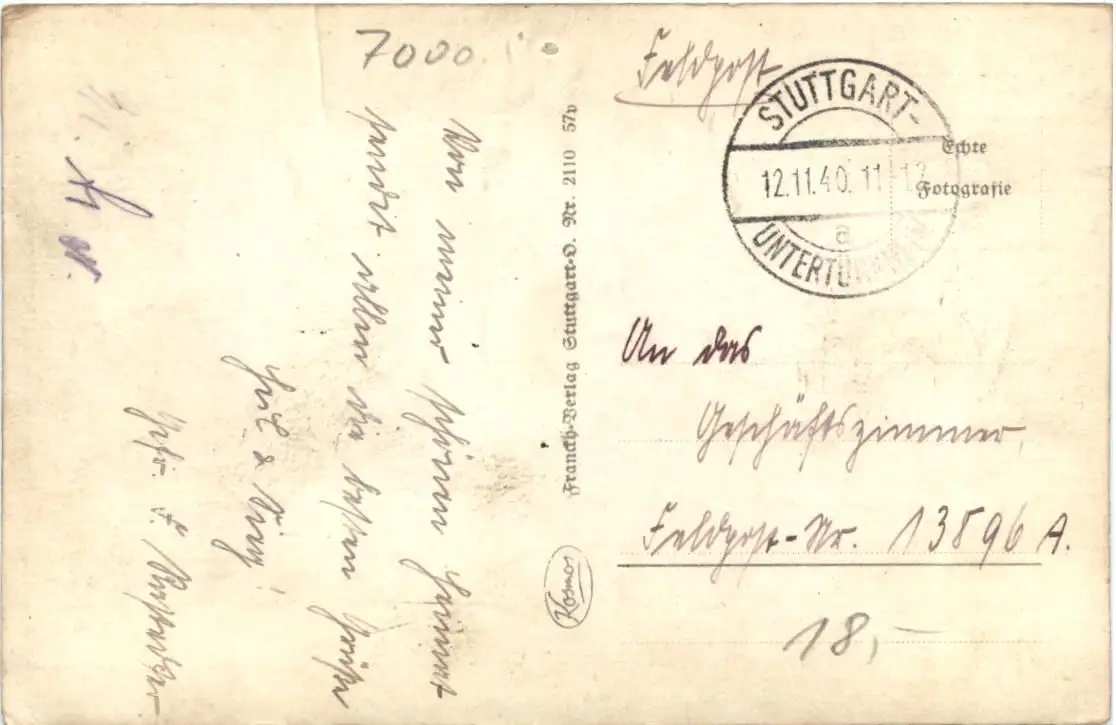 7000
Von meiner schönen Heimat
sendet allen die besten Grüße
Heil & Sieg!
Gefr. F.
Franckh-Verlag Stuttgart-O. Nr. 2110 57v
Kosmos
Feldpost
STUTTGART-
12.11.40. 11-12
a
UNTERTÜRKHEIM
Echte
Fotografie
An das
Geschäftszimmer,
Feldpost-Nr. 13896 A.
18,-